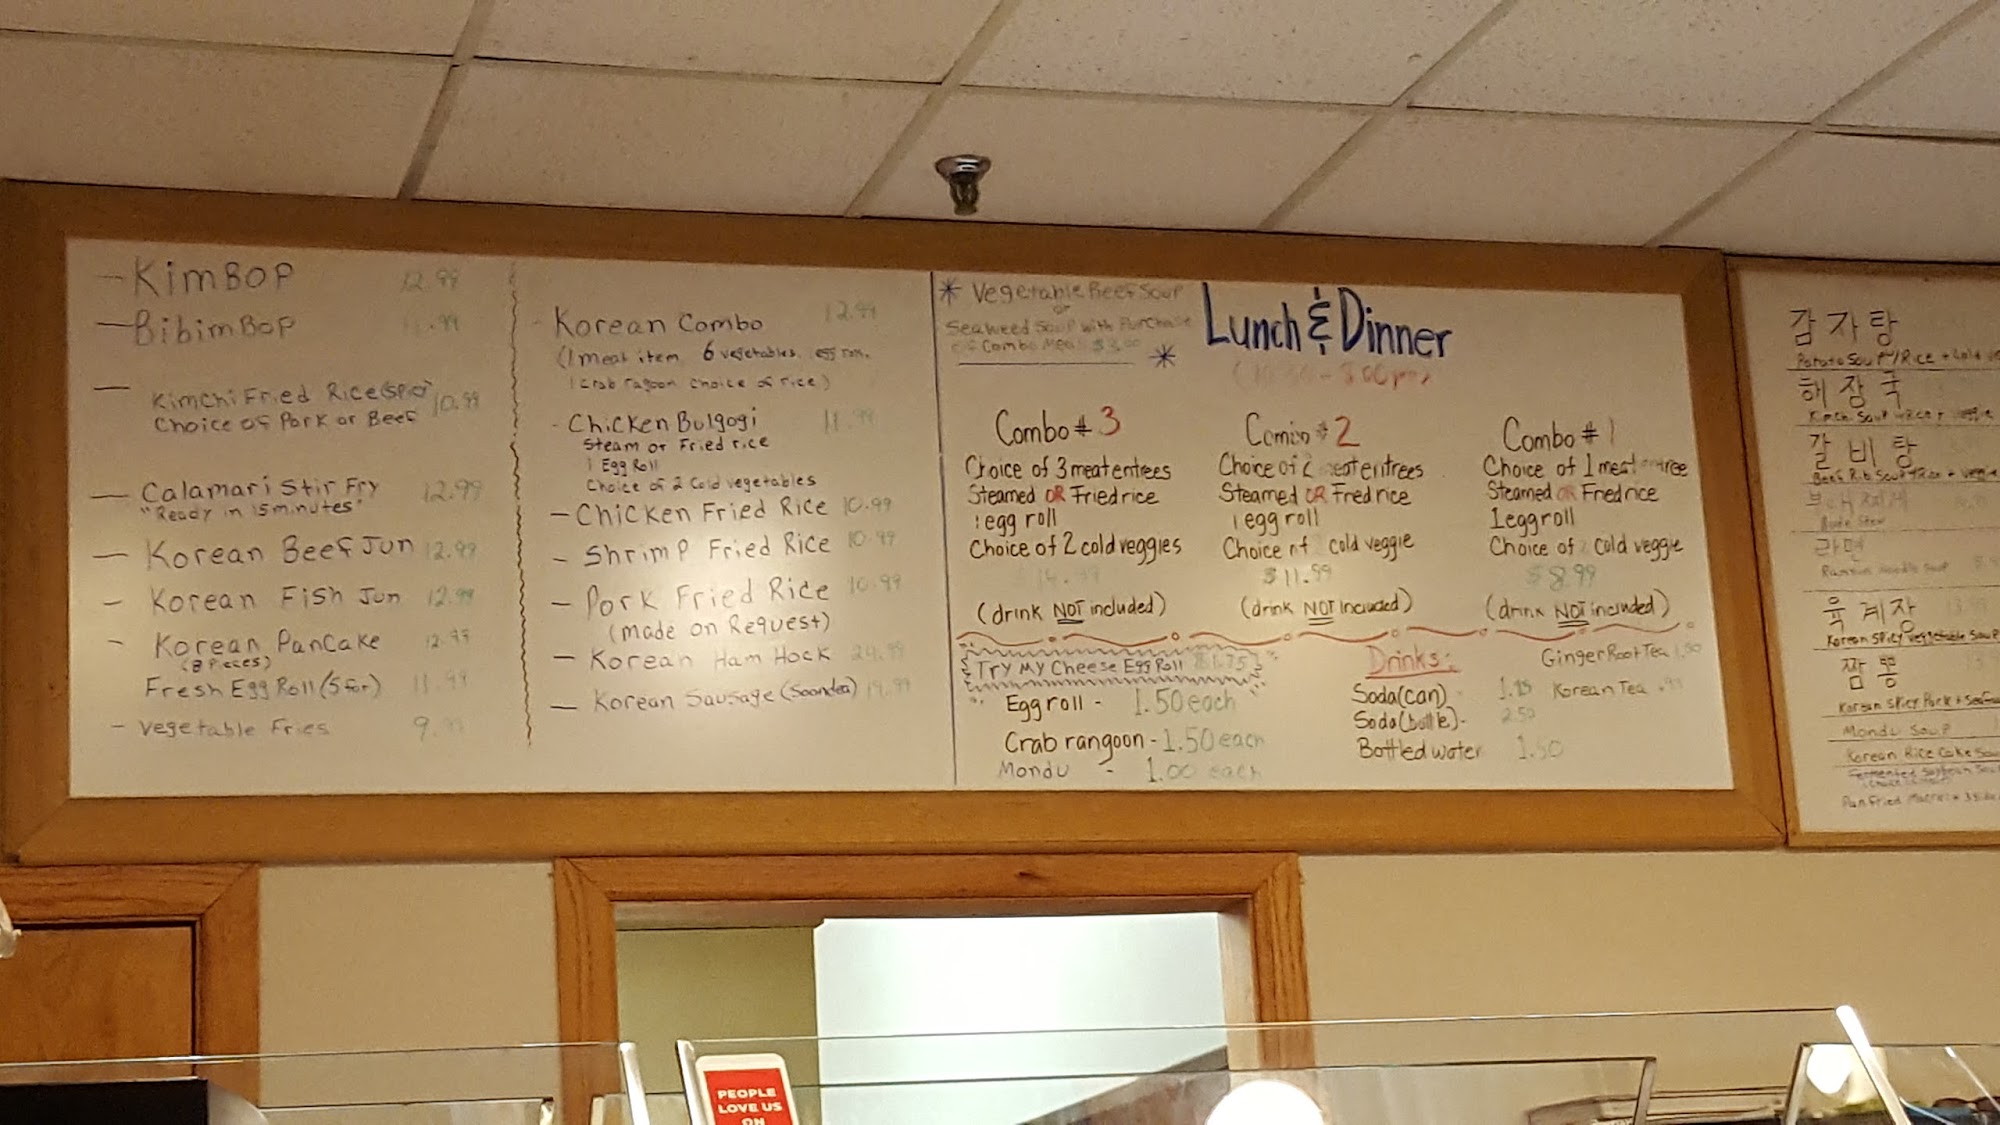 - KimBop 12.99
- BibimBop 11.99
- Kimchi Fried Rice 10.99
Choice of Pork or Beef
- Calamari Stir Fry 12.99
"Ready in 15 minutes"
- Korean Beef Jun 12.99
- Korean Fish Jun 12.99
- Korean Pancake 12.99
(8 Pieces)
Fresh Egg Roll (5 for) 11.99
- Vegetable Fries 9.99
- Korean Combo 12.99
(1 meat item, 6 vegetables, egg roll,
1 Crab ragoon choice of rice)
- Chicken Bulgogi 11.99
Steam or Fried rice
1 Egg Roll
Choice of 2 Cold vegetables
- Chicken Fried Rice 10.99
- Shrimp Fried Rice 10.99
- Pork Fried Rice 10.99
(made on Request)
- Korean Ham Hock
- Korean Sausage (Soondea) 19.99
* Vegetable Beef Soup
or
Seaweed Soup with Purchase
of Combo Meal
*
Lunch & Dinner
Combo # 3
Choice of 3 meat entrees
Steamed OR Fried rice
1 egg roll
Choice of 2 cold veggies
(drink NOT included)
Combo # 2
Choice of 2 meat entrees
Steamed OR Fried rice
1 egg roll
Choice of cold veggie
$11.99
(drink NOT included)
Combo # 1
Choice of 1 meat entree
Steamed OR Fried rice
1 egg roll
Choice of cold veggie
$8.99
(drink NOT included)
Try My Cheese Egg Roll $1.75
Egg roll - 1.50 each
Crab rangoon - 1.50 each
Mondu - 1.00 each
Drinks:
Soda (can) -
Soda (bottle) - 2.50
Bottled water 1.50
Ginger Root Tea 1.50
Korean Tea .99
감자탕
Potato Soup w/Rice +
해장국
갈비탕
Beef Rib Soup w/Rice +
라면
Ramen Noodle Soup
육계장
Korean Spicy Vegetable Soup
짬뽕
Korean Spicy Pork +
Mondu Soup
Korean Rice Cake
PEOPLE
LOVE US
ON